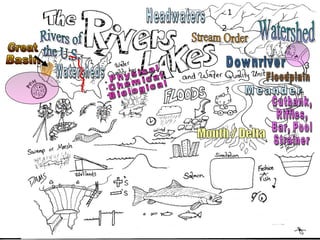 The
Rivers
Lakes
and Water Quality Unit
Headwaters
1
2
Stream Order
Watershed
Rivers of
the U.S.
Great
Basin
Watersheds
Water
Quality
Physical
Chemical
Biological
Downriver
Floodplain
Meander
FLOODS
Cutbank,
Riffles,
Bar, Pool
Strainer
Mouth / Delta
Swamp or Marsh
Wetlands
DAMS
+'s
-'s
Salmon
Simulation
Fish